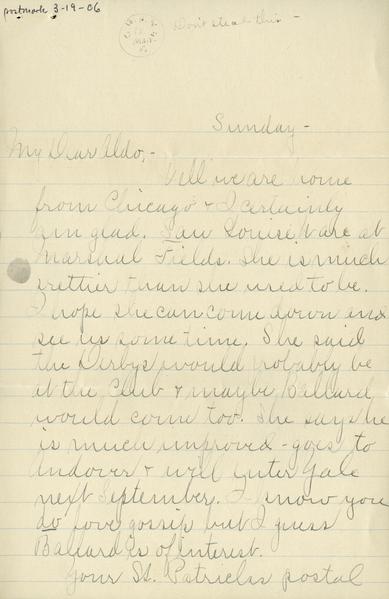 postmark 3-19-06
Don't steal this -
Sunday -
My Dear Aldo, -
Well we are home
from Chicago & I certainly
am glad. Saw Louise Ware at
Marshall Fields. She is much
prettier than she used to be.
I hope she can come down and
see us some time. She said
the Derbys would probably be
at the Club & maybe Ballard
would come too. She says he
is much improved - goes to
Andover & will enter Yale
next September. I know you
do love gossip but I guess
Ballard is of interest.
Your St. Patricks postal